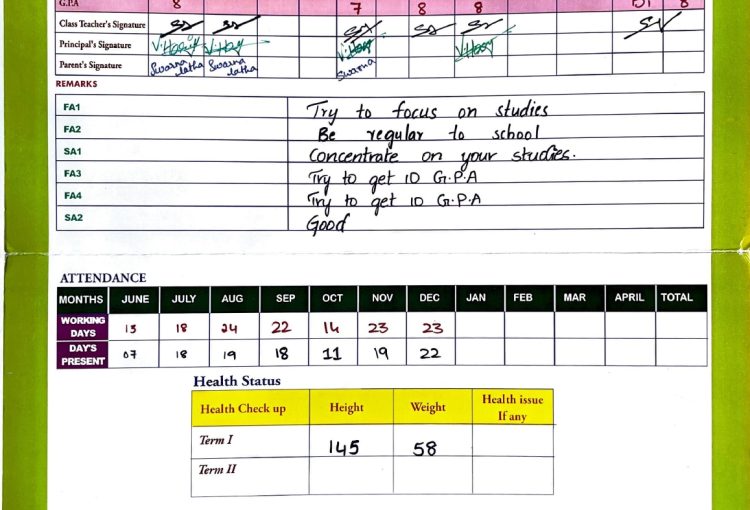 G.P.A 8 7 8 8 8
Class Teacher's Signature
Principal's Signature V.Hary V.Hary V.Hary V.Hary
Parent's Signature Swarna latha Swarna latha Swarna
REMARKS
FA1 Try to focus on studies
FA2 Be regular to school
SA1 Concentrate on your studies.
FA3 Try to get 10 G.P.A
FA4 Try to get 10 G.P.A
SA2 Good
ATTENDANCE
MONTHS JUNE JULY AUG SEP OCT NOV DEC JAN FEB MAR APRIL TOTAL
WORKING DAYS 13 18 24 22 14 23 23
DAY'S PRESENT 07 18 19 18 11 19 22
Health Status
Health Check up Height Weight Health issue If any
Term I 145 58
Term II